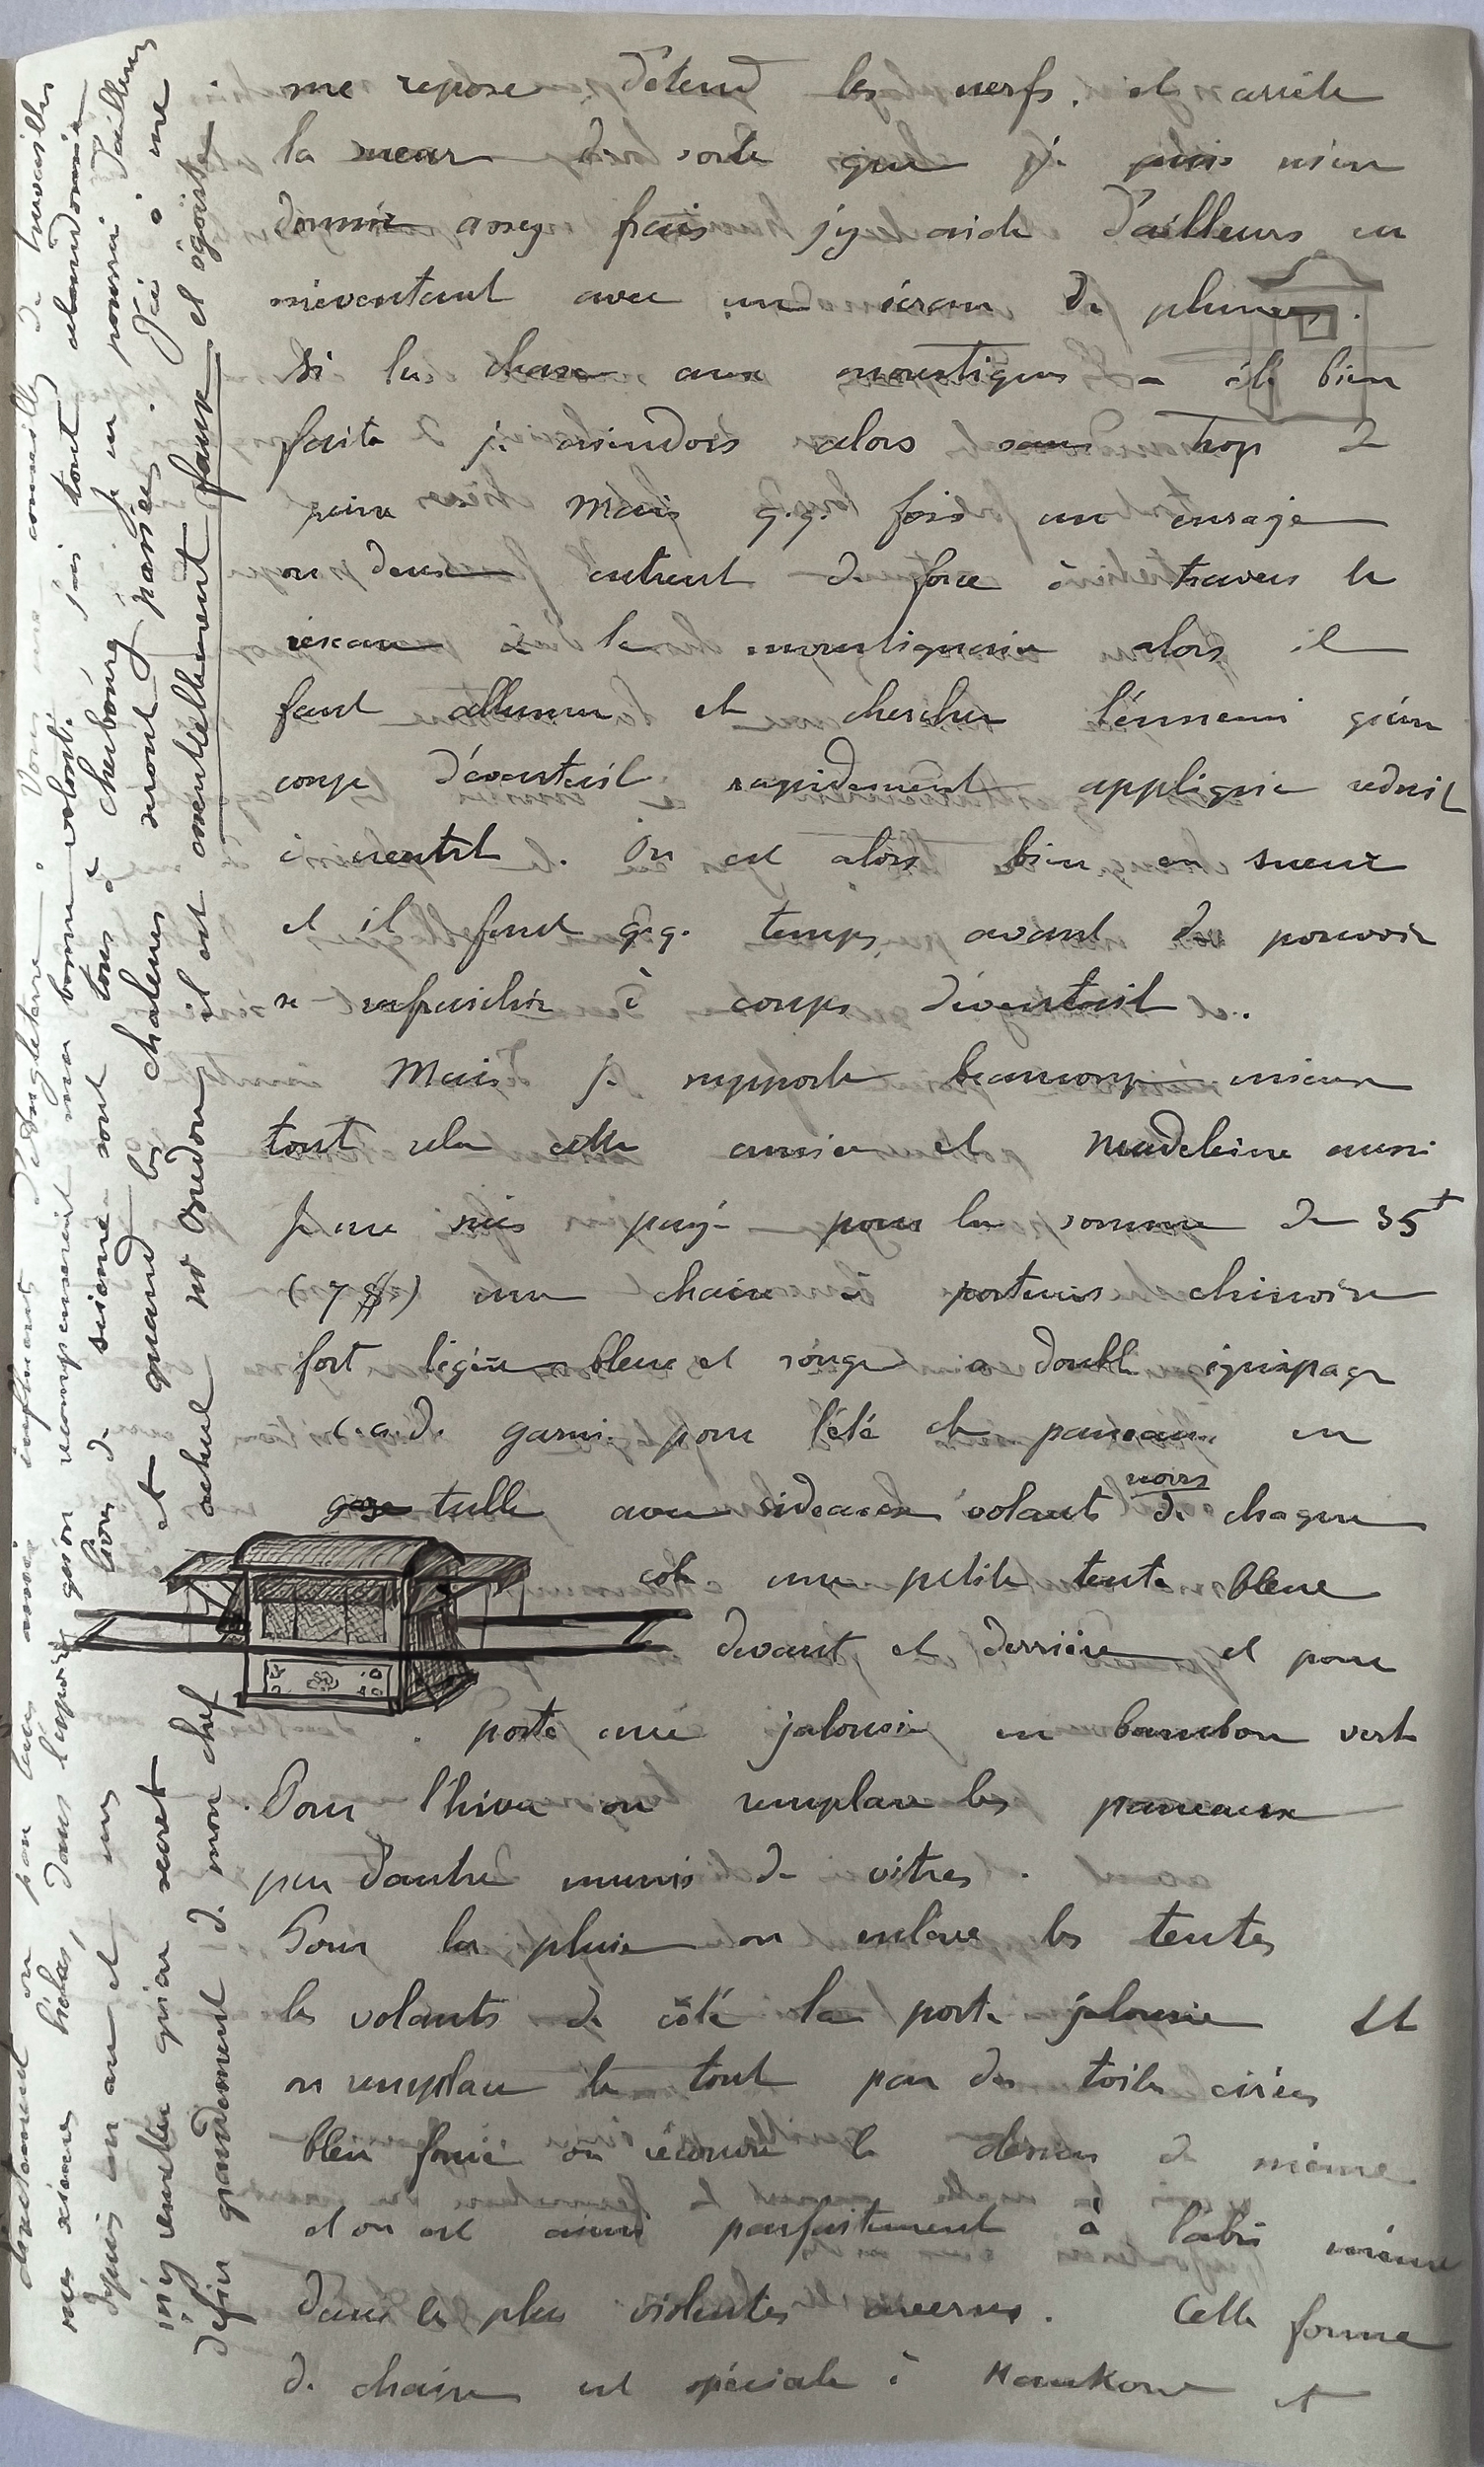 me repose, détend les nerfs, et arrête
la sueur de sorte que je puis m'en
dormir assez frais j'y aide d'ailleurs en
m'éventant avec un écran de plumes.
Si la chasse aux moustiques a été bien
faite je m'endors alors sans trop de
peine Mais q.q. fois un enragé
ou deux entrent de force à travers le
réseau de la moustiquaire alors il
faut allumer et chercher l'ennemi qu'un
coup d'éventail rapidement appliqué réduit
à néant. On est alors bien en sueur
et il faut q.q. temps, avant de pouvoir
se rafraichir à coups d'éventail.
Mais je supporte beaucoup mieux
tout cela cette année et Madeleine aussi
Je me suis payé pour la somme de 35f
(7 $) une chaise à porteurs chinoise
fort légère bleue et rouge a double équipage
c.a.d. garni pour l'été de panneaux en
gaze tulle avec rideaux volants noirs de chaque
coté une petite tente bleue
devant et derrière et pour
porte une jalousie en bambou vert
Pour l'hiver on remplace les panneaux
par d'autre munis de vitres.
Pour la pluie on enlève les tentes
les volants de côté la porte jalousie et
on remplace le tout par des toiles cirées
bleu foncé on recouvre le dessus de même
et on est ainsi parfaitement à l'abri même
dans les plus violentes averses. Cette forme
de chaise est spéciale à Hankow et
directement ou par leurs amis influents d'Angleterre. Vous me conseillez de travailler
mes examens hélas, dans l'espoir qu'on récompenserait ma bonne volonté. J'ai tout abandonné
depuis un an et mes livres de science sont tous à Cherbourg je m'y remettrai d'ailleurs
et quand les chaleurs seront passées. J'ai à me
m'y mettre qu'en secret
défier grandement de mon chef actuel Mr Onédon, il est essentiellement faux et égoïste.